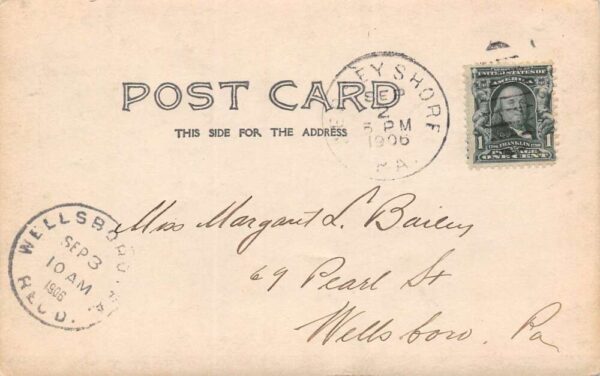 POST CARD
THIS SIDE FOR THE ADDRESS
EYSHORE
SEP
2
5 PM
1906
PA.
UNITED STATES OF
AMERICA
1 1
FRANKLIN
POSTAGE
ONE CENT
WELLSBORO,
SEP 3
10 AM
1906
REC'D.
Miss Margaret L. Bailey
69 Pearl St
Wellsboro. Pa